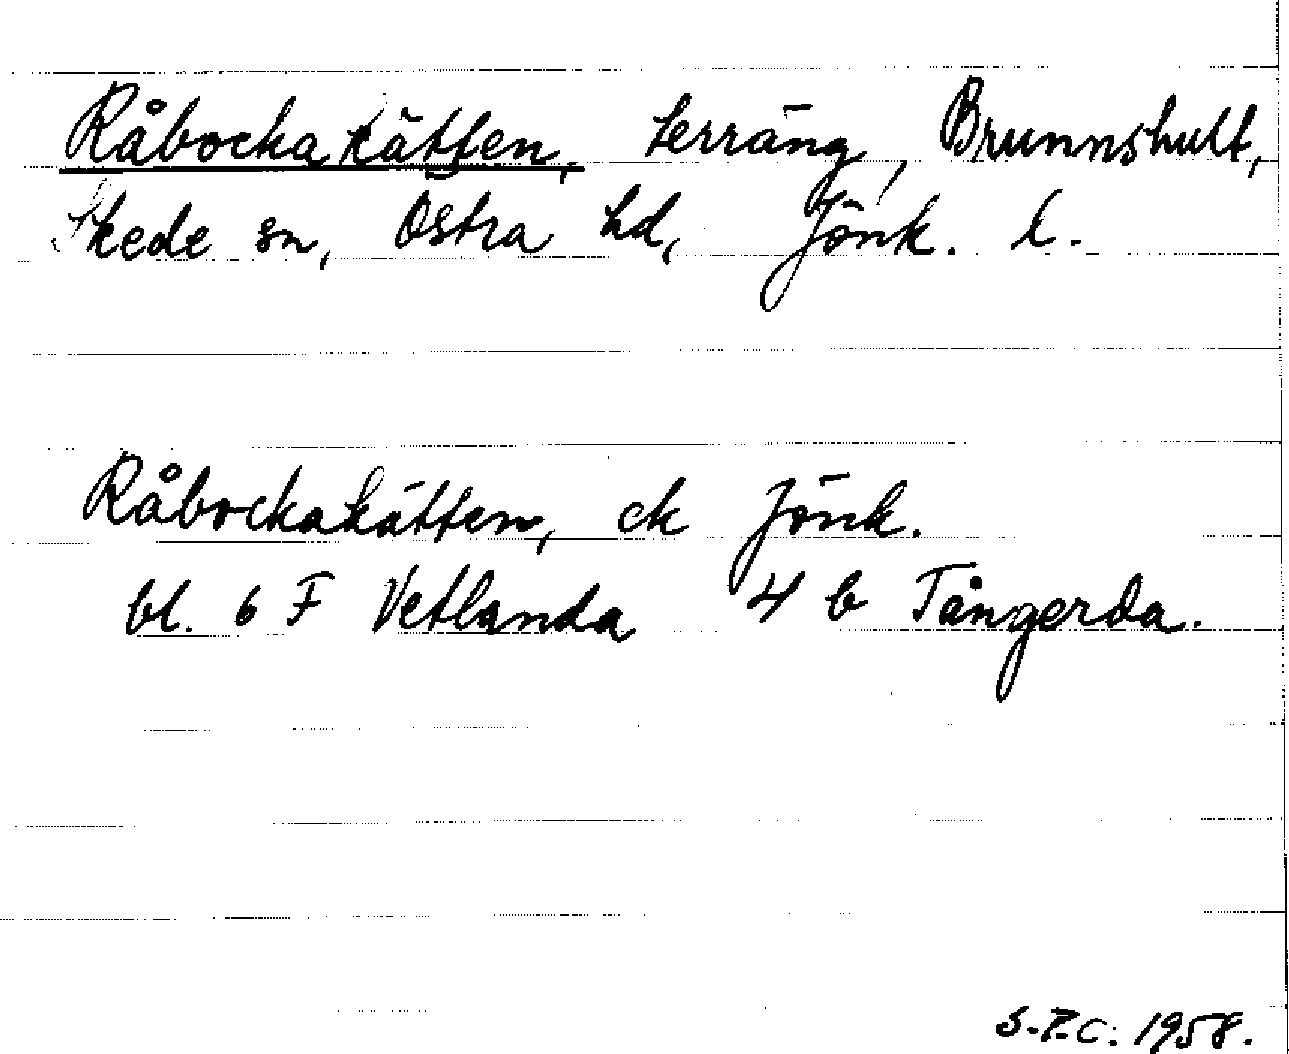 Råbockakätten, terräng, Brunnshult,
Skede sn, Östra hd, Jönk. l.
Råbockakätten, ek Jönk.
bl. 6 F Vetlanda 4 b Tångerda.
S.F.C. 1958.